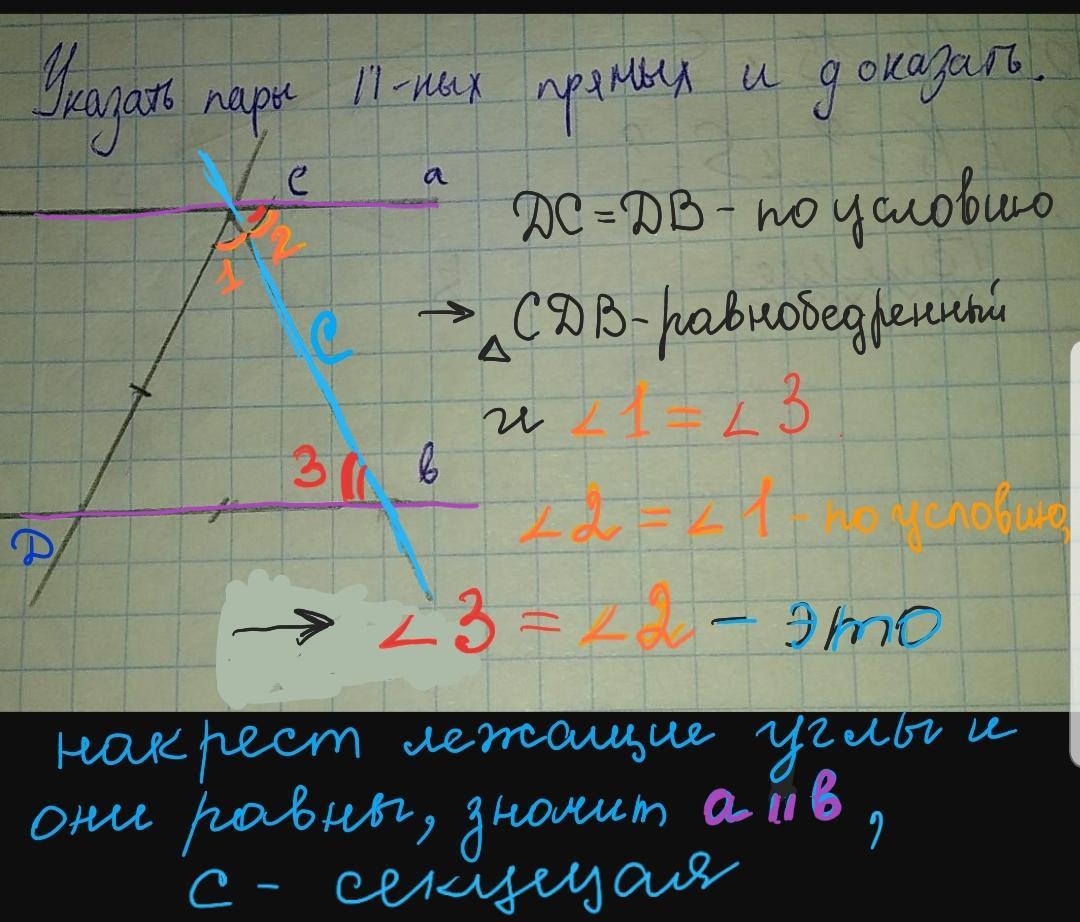 Указать пары II-ных прямых и доказать.
C a
DC = DB - по условию
1 2
→ △ CDB - равнобедренный
C
и ∠1 = ∠3
3 в
∠2 = ∠1 - по условию,
D
→ ∠3 = ∠2 - это
накрест лежащие углы и
они равны, значит a II в,
с - секущая